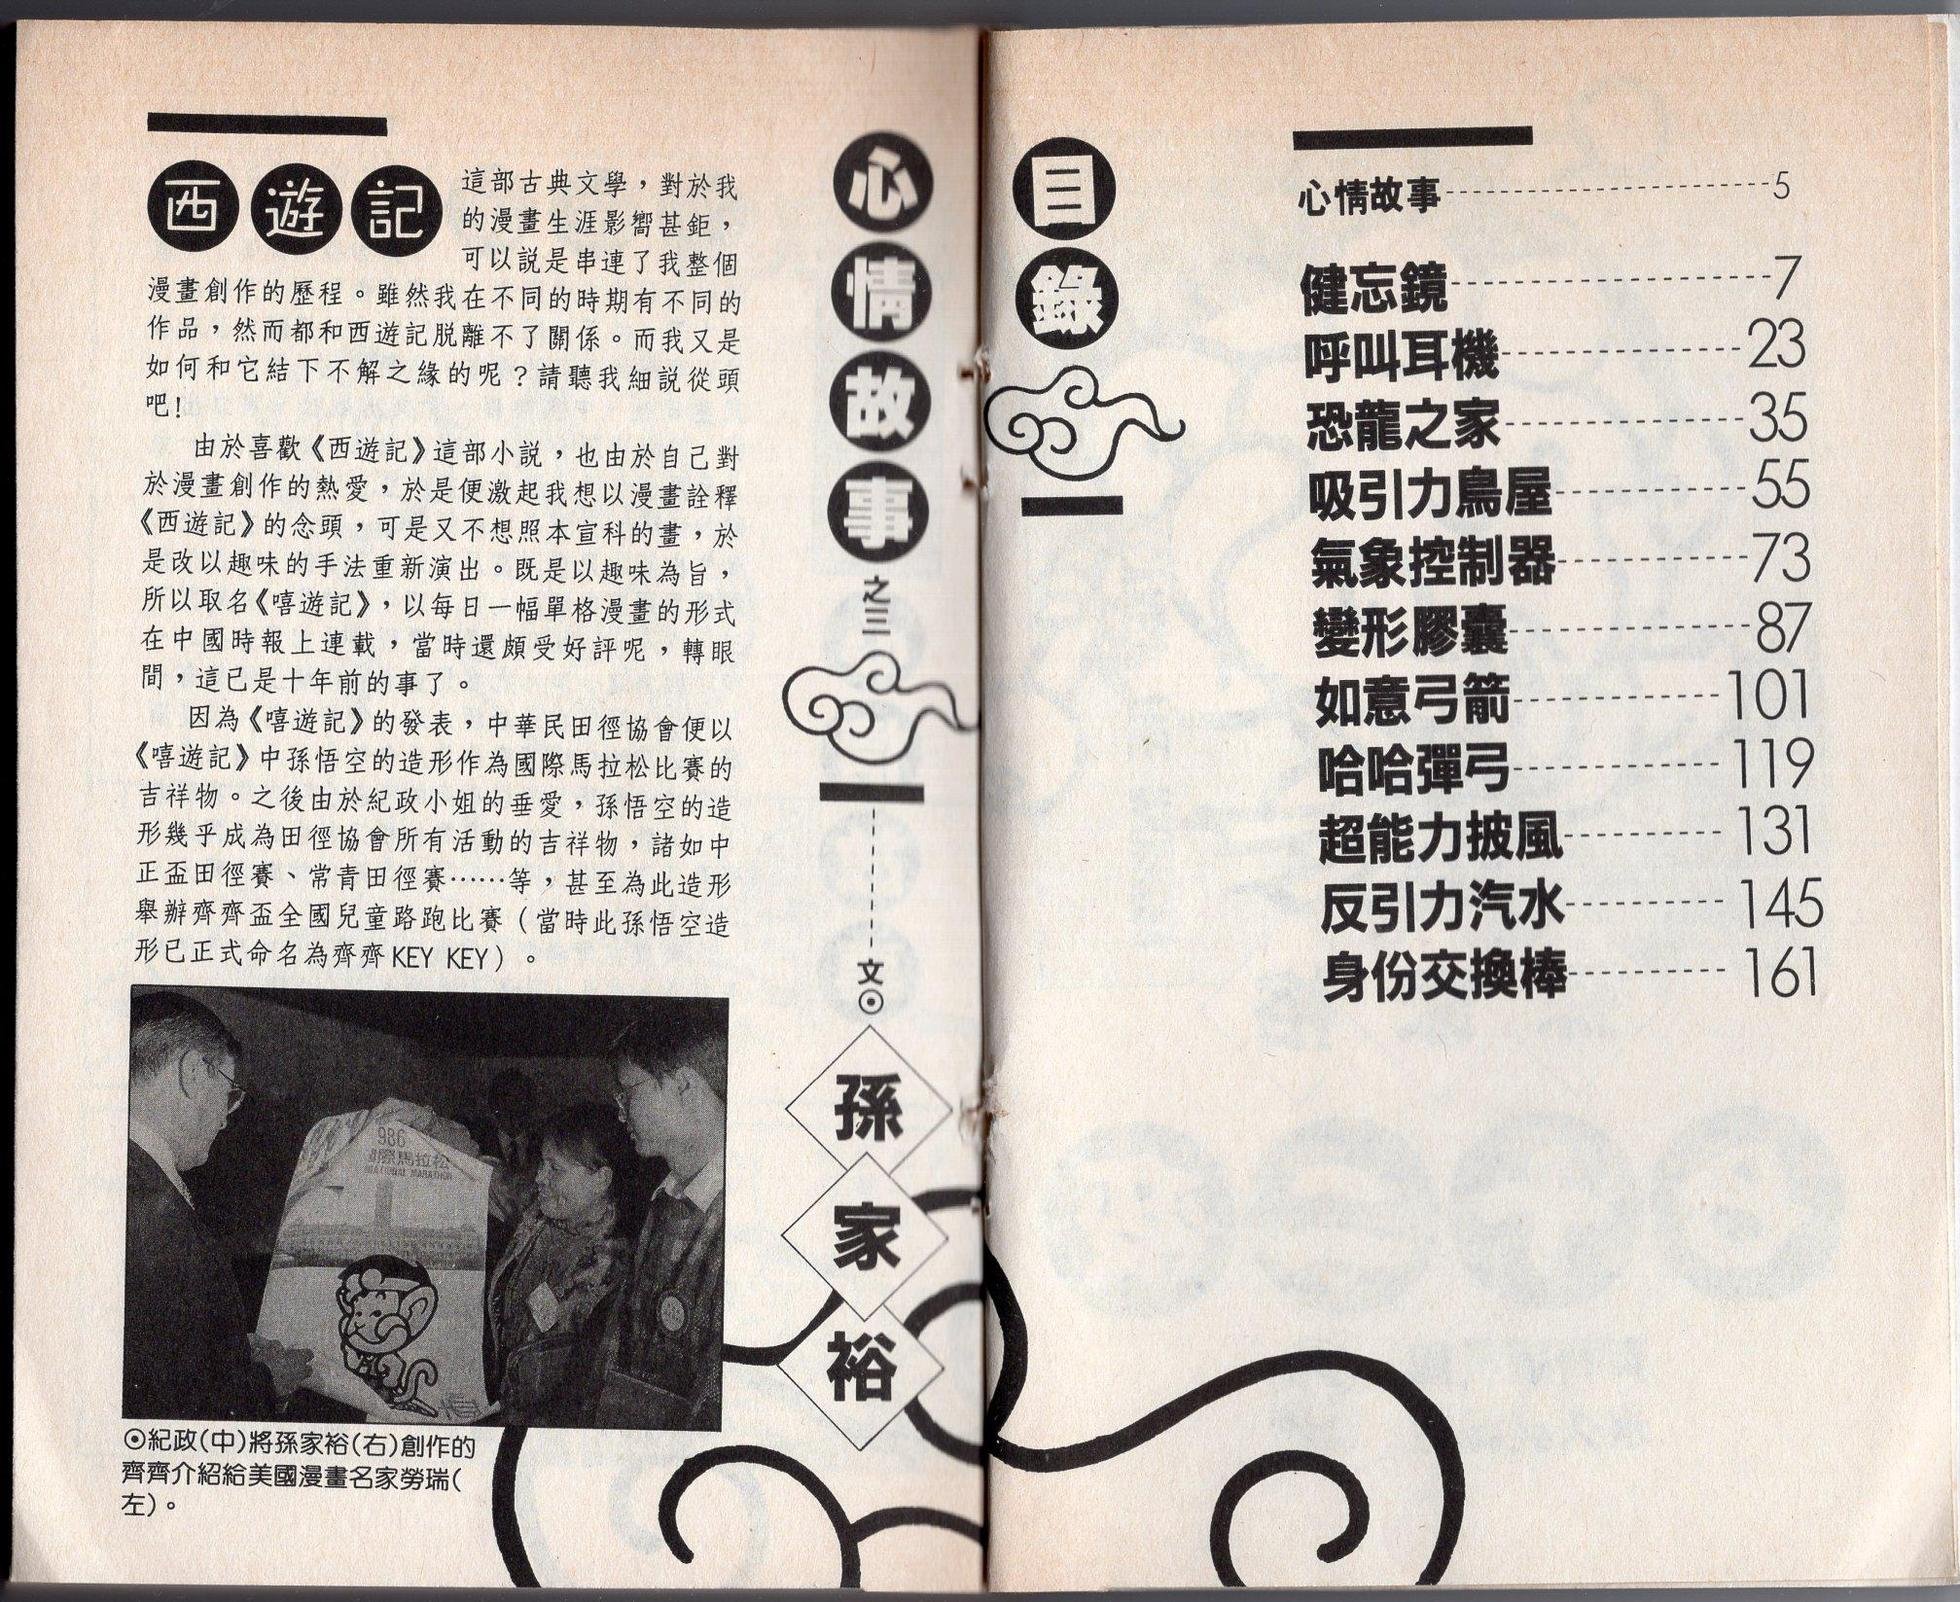 目錄
心情故事 5
健忘鏡 7
呼叫耳機 23
恐龍之家 35
吸引力鳥屋 55
氣象控制器 73
變形膠囊 87
如意弓箭 101
哈哈彈弓 119
超能力披風 131
反引力汽水 145
身份交換棒 161
心情故事之三
文⊙
孫家裕
西遊記
這部古典文學，對於我
的漫畫生涯影響甚鉅，
可以説是串連了我整個
漫畫創作的歷程。雖然我在不同的時期有不同的
作品，然而都和西遊記脱離不了關係。而我又是
如何和它結下不解之緣的呢？請聽我細説從頭
吧！
由於喜歡《西遊記》這部小説，也由於自己對
於漫畫創作的熱愛，於是便激起我想以漫畫詮釋
《西遊記》的念頭，可是又不想照本宣科的畫，於
是改以趣味的手法重新演出。既是以趣味為旨，
所以取名《嘻遊記》，以每日一幅單格漫畫的形式
在中國時報上連載，當時還頗受好評呢，轉眼
間，這已是十年前的事了。
因為《嘻遊記》的發表，中華民田徑協會便以
《嘻遊記》中孫悟空的造形作為國際馬拉松比賽的
吉祥物。之後由於紀政小姐的垂愛，孫悟空的造
形幾乎成為田徑協會所有活動的吉祥物，諸如中
正盃田徑賽、常青田徑賽……等，甚至為此造形
舉辦齊齊盃全國兒童路跑比賽（當時此孫悟空造
形已正式命名為齊齊KEY KEY）。
986
際馬拉松
NATIONAL MARATHON
⊙紀政(中)將孫家裕(右)創作的
齊齊介紹給美國漫畫名家勞瑞(
左)。